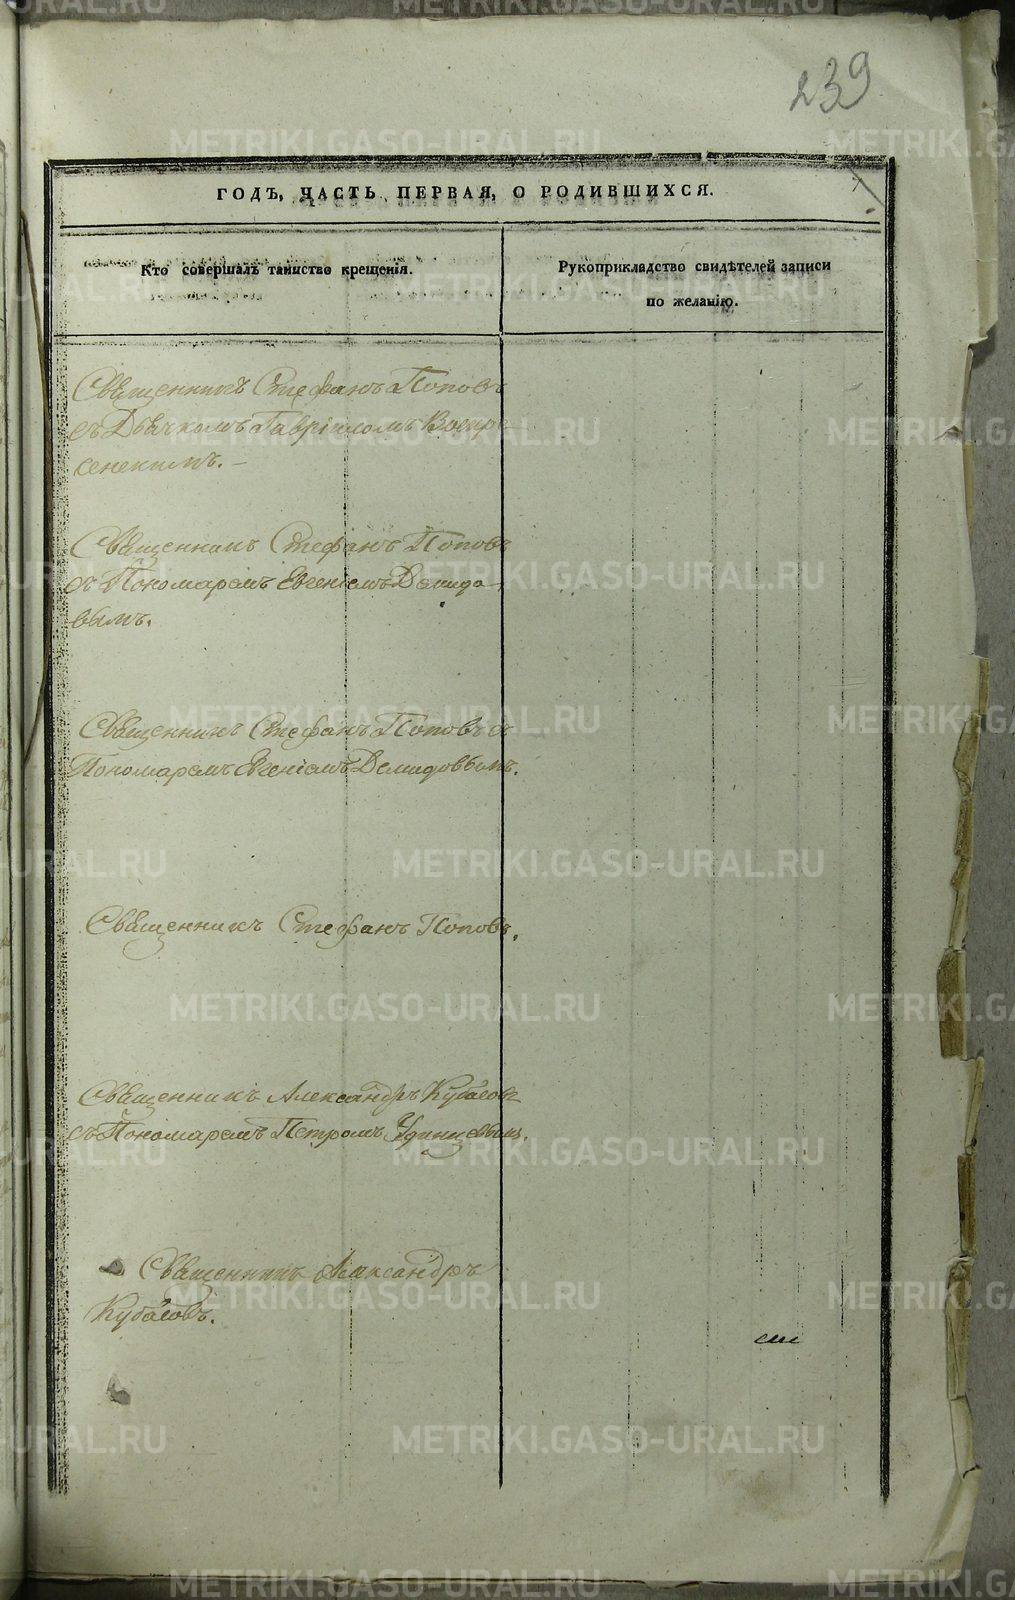 239
ГОДЪ, ЧАСТЬ ПЕРВАЯ, О РОДИВШИХСЯ.
Кто совершалъ таинство крещенія.
Рукоприкладство свидѣтелей записи
по желанію.
Священникъ Стефанъ Поповъ
съ Дьячкомъ Гавріиломъ Воскре-
сенскимъ.
Священникъ Стефанъ Поповъ
съ Пономаремъ Евгеніемъ Демидо-
вымъ.
Священникъ Стефанъ Поповъ съ
Пономаремъ Евгеніемъ Демидовымъ.
Священникъ Стефанъ Поповъ.
Священникъ Александръ Кубасовъ
съ Пономаремъ Петромъ
Священникъ Александръ
Кубасовъ.
METRIKI.GASO-URAL.RU